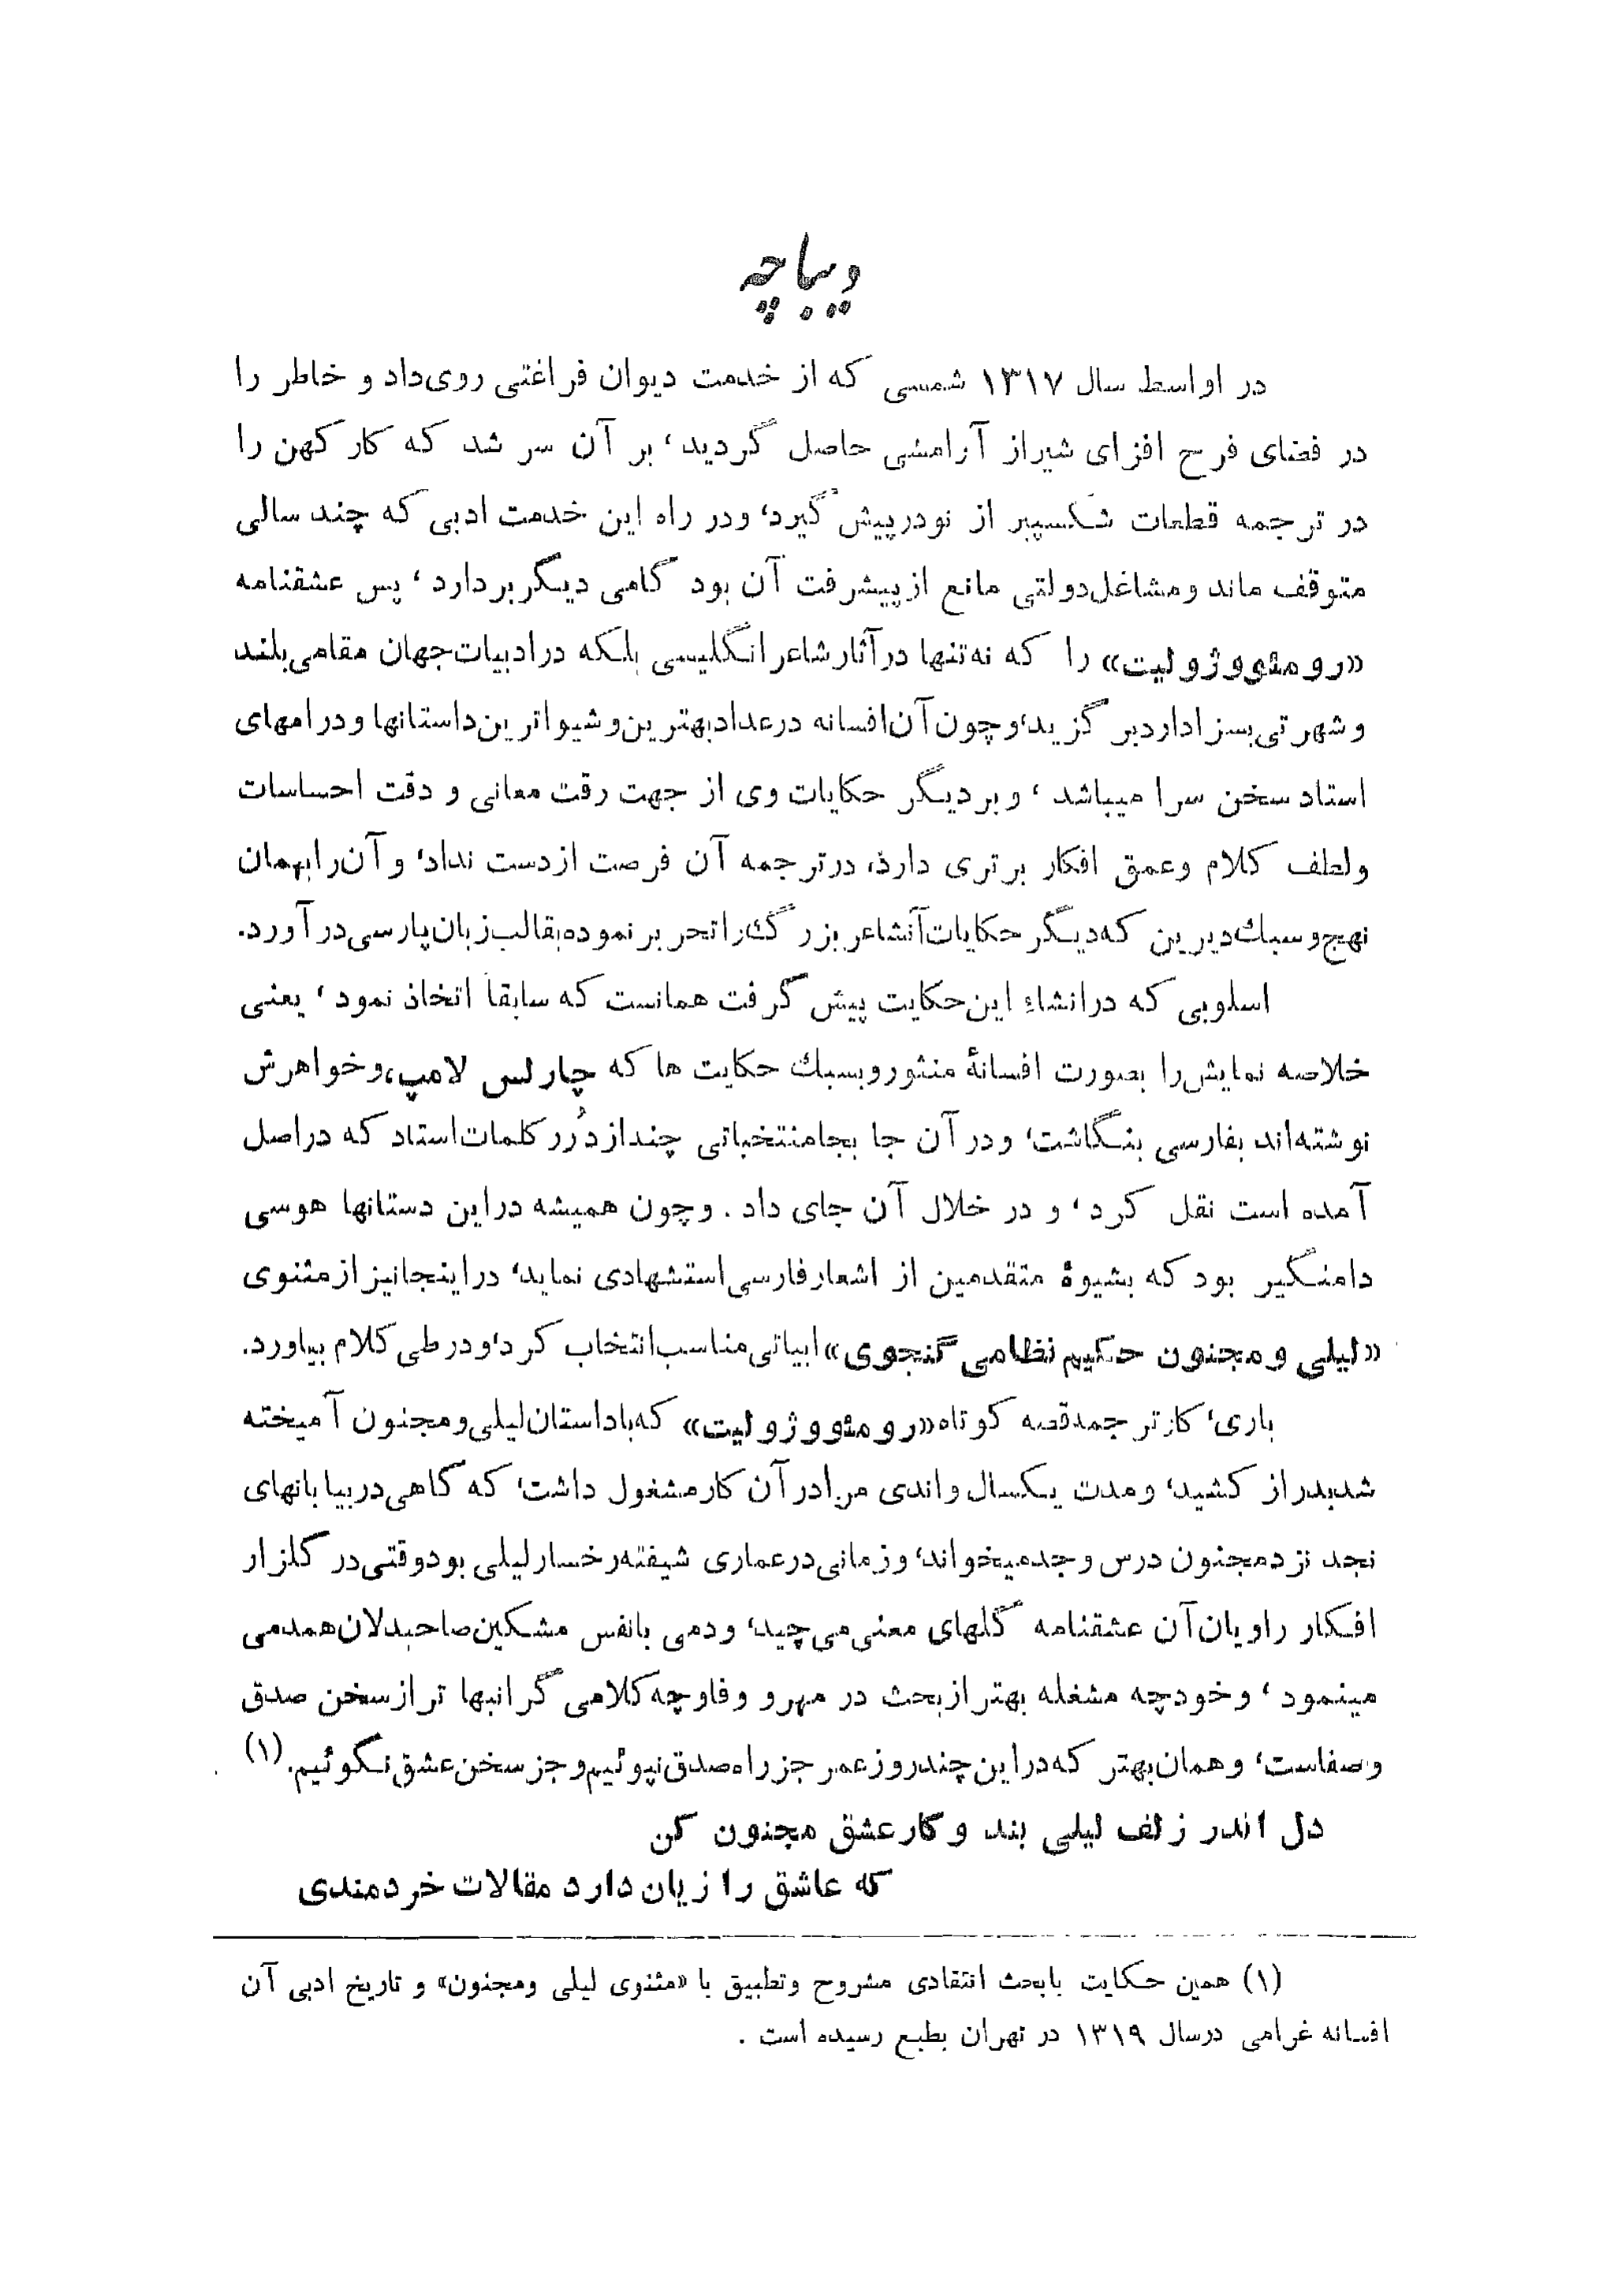 دیباچه
در اواسط سال ۱۳۱۷ شمسی که از خدمت دیوان فراغتی روی‌داد و خاطر را
در فضای فرح افزای شیراز آرامشی حاصل گردید، بر آن سر شد که کار کهن را
در ترجمه قطعات شکسپیر از نو درپیش گیرد، ودر راه این خدمت ادبی که چند سالی
متوقف ماند ومشاغل‌دولتی مانع ازپیشرفت آن بود گامی دیگر بردارد، پس عشقنامه
«رومئووژولیت» را که نه‌تنها درآثار شاعر انگلیسی بلکه درادبیات‌جهان مقامی‌بلند
وشهرتی‌بسزا دارد برگزید، وچون آن‌افسانه درعداد بهترین‌وشیواترین‌داستانها ودرامهای
استاد سخن سرا میباشد، وبر دیگر حکایات وی از جهت رقت معانی و دقت احساسات
ولطف کلام وعمق افکار برتری دارد، درترجمه آن فرصت ازدست نداد، وآن‌را بهمان
نهج‌وسبك‌دیرین که‌دیگر حکایات‌آنشاعر بزرگ را تحریر نموده بقالب‌زبان‌پارسی‌درآورد.
اسلوبی که درانشاءِ این‌حکایت پیش گرفت همانست که سابقاً اتخاذ نمود، یعنی
خلاصه نمایش‌را بصورت افسانهٔ منثور وبسبك حکایت ها که چارلس لامپ، وخواهرش
نوشته‌اند بفارسی بنگاشت، ودرآن جا بجا منتخباتی چند از دُرر کلمات‌استاد که دراصل
آمده است نقل کرد، و در خلال آن جای داد. وچون همیشه دراین دستانها هوسی
دامنگیر بود که بشیوهٔ متقدمین از اشعارفارسی‌استشهادی نماید، دراینجانیز ازمثنوی
«لیلی ومجنون حکیم نظامی گنجوی» ابیاتی‌مناسب‌انتخاب کرد، ودرطی کلام بیاورد.
باری، کارترجمه‌قصه کوتاه «رومئووژولیت» که‌با داستان‌لیلی‌ومجنون آمیخته
شد بدراز کشید، ومدت یکسال واندی مرا درآن کارمشغول داشت، که گاهی‌دربیابانهای
نجد نزدمجنون درس وجدمیخواند، وزمانی‌درعماری شیفته‌رخسارلیلی بود وقتی‌در گلزار
افکار راویان‌آن عشقنامه گلهای معنی‌می‌چید، ودمی بانفس مشکین‌صاحبدلان‌همدمی
مینمود، وخودچه مشغله بهتر ازبحث در مهر و وفا وچه کلامی گرانبها تر ازسخن صدق
وصفاست، وهمان‌بهتر که‌دراین‌چندروزعمر جز راه‌صدق‌نپوئیم‌وجز سخن‌عشق‌نگوئیم. (۱)
دل اندر زلف لیلی بند و کار عشق مجنون کن
که عاشق را زیان دارد مقالات خردمندی
(۱) همین حکایت بابحث انتقادی مشروح وتطبیق با «مثنوی لیلی ومجنون» و تاریخ ادبی آن
افسانه غرامی درسال ۱۳۱۹ در تهران بطبع رسیده است .